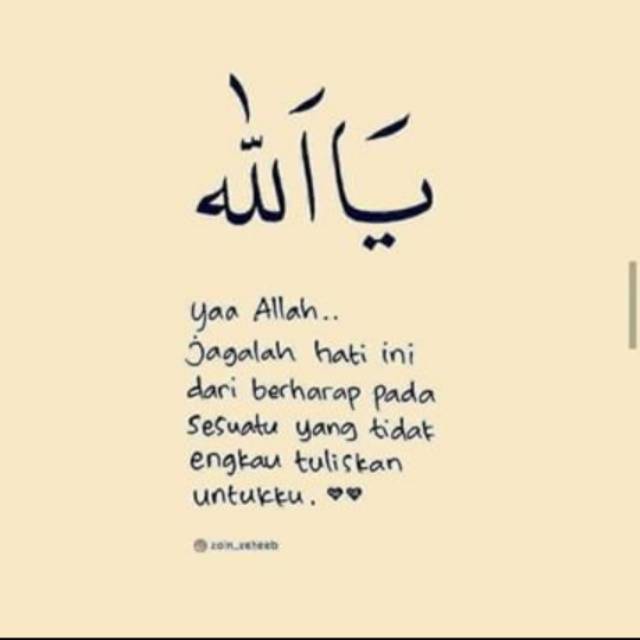 يَا اَللّٰه
yaa Allah..
jagalah hati ini
dari berharap pada
sesuatu yang tidak
engkau tuliskan
untukku. 🖤🖤